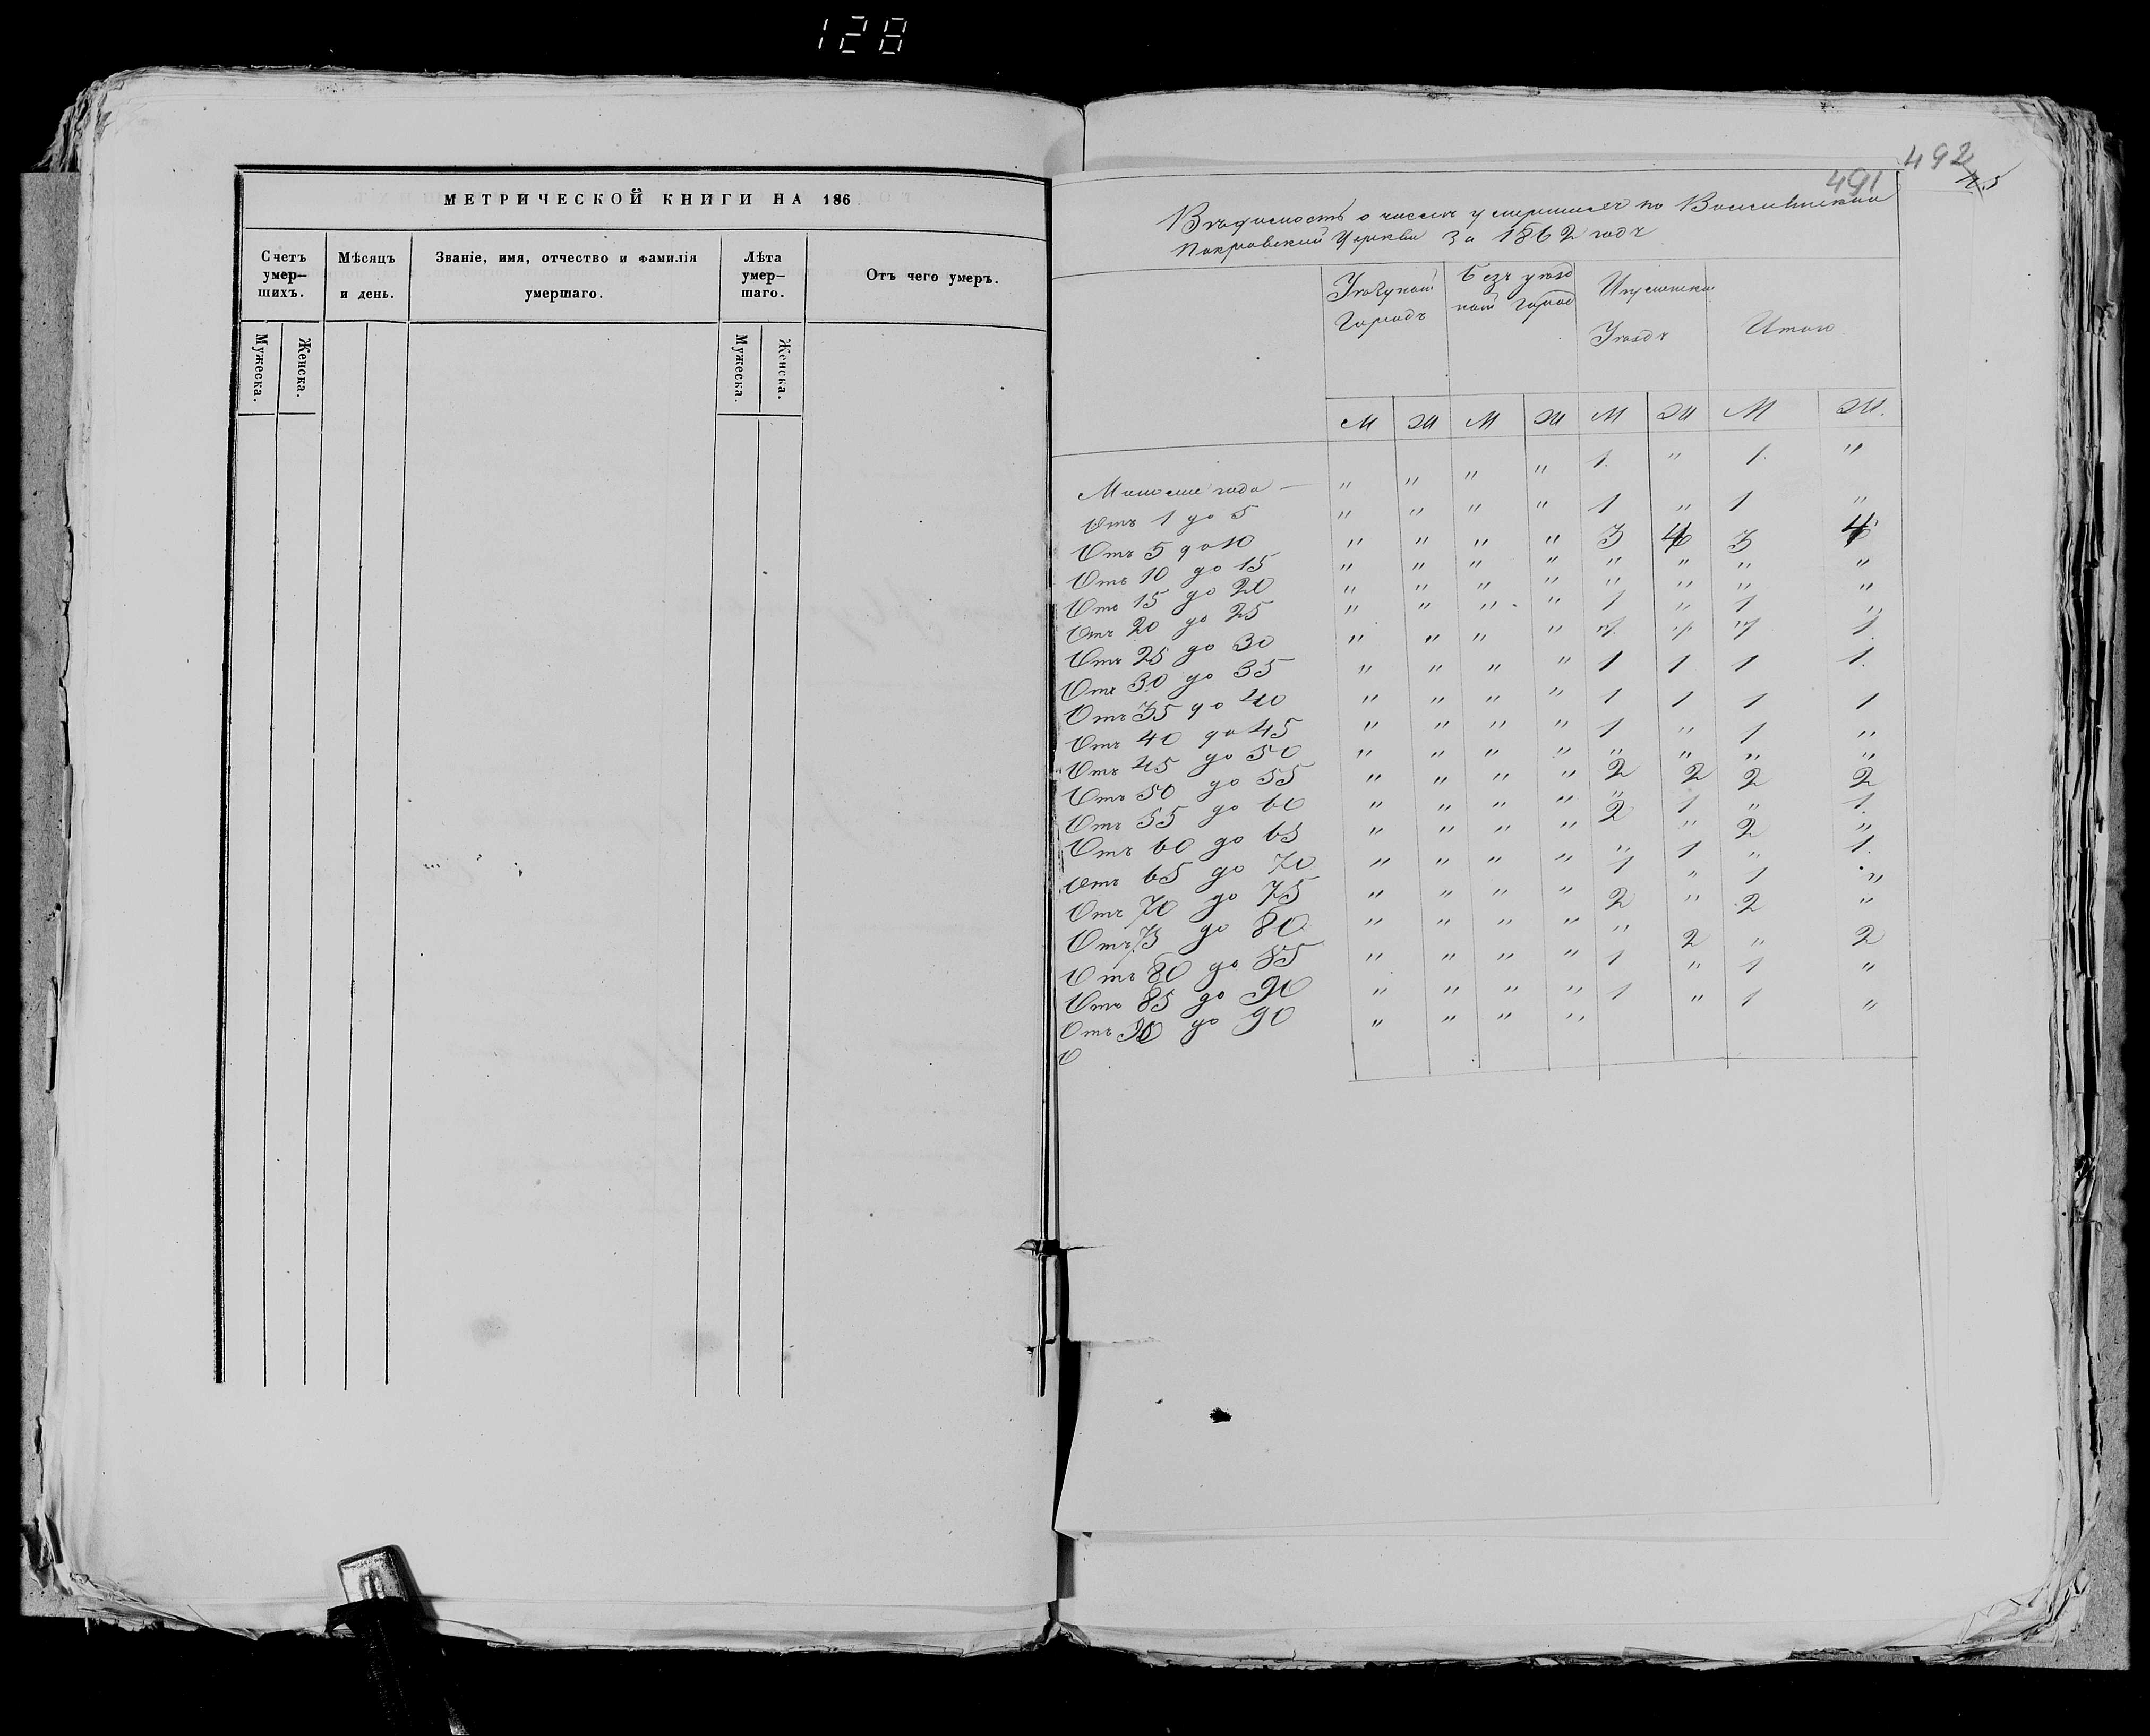 128
МЕТРИЧЕСКОЙ КНИГИ НА 186
Счетъ умер–шихъ.
Мѣсяцъ и день.
Званіе, имя, отчество и фамилія умершаго.
Лѣта умер–шаго.
Отъ чего умеръ.
Мужеска.
Женска.
Мужеска.
Женска.
492
491
Вѣдомость о числѣ умершихъ по
Покровской Церкви За 1862 годъ
Уѣздной Городъ
Безъ уѣзд ной Город
Уѣздъ
Итого
М Ж М Ж М Ж М Ж.
Моложе года — " " " " 1. " 1. "
Отъ 1 до 5 " " " " 1 " 1 "
Отъ 5 до 10 " " " " 3 4 3 4
Отъ 10 до 15 " " " " " " " "
Отъ 15 до 20 " " " " " " " "
Отъ 20 до 25 " " " " 1 " 1 "
Отъ 25 до 30 " " " "
Отъ 30 до 35 " " " " 1 1 1 1.
Отъ 35 до 40 " " " " 1 1 1 1
Отъ 40 до 45 " " " " 1 " 1 "
Отъ 45 до 50 " " " " " " " "
Отъ 50 до 55 " " " " 2 2 2 2
Отъ 55 до 60 " " " " " 1 " 1.
Отъ 60 до 65 " " " " 2 " 2 "
Отъ 65 до 70 " " " " " 1 " 1.
Отъ 70 до 75 " " " " 1 " 1 "
Отъ 75 до 80 " " " " 2 " 2 "
Отъ 80 до 85 " " " " " 2 " 2
Отъ 85 до 90 " " " " 1 " 1 "
Отъ 90 до 90 " " " " 1 " 1 "
О